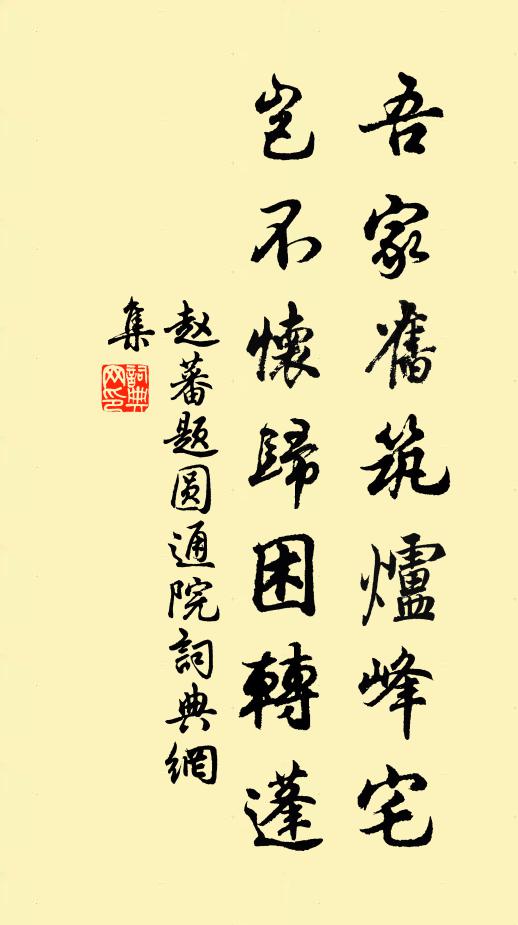 吾家舊筑爐峰宅
豈不懷歸困轉蓬
赵蕃题圆通院詞典網
集
詞典網印